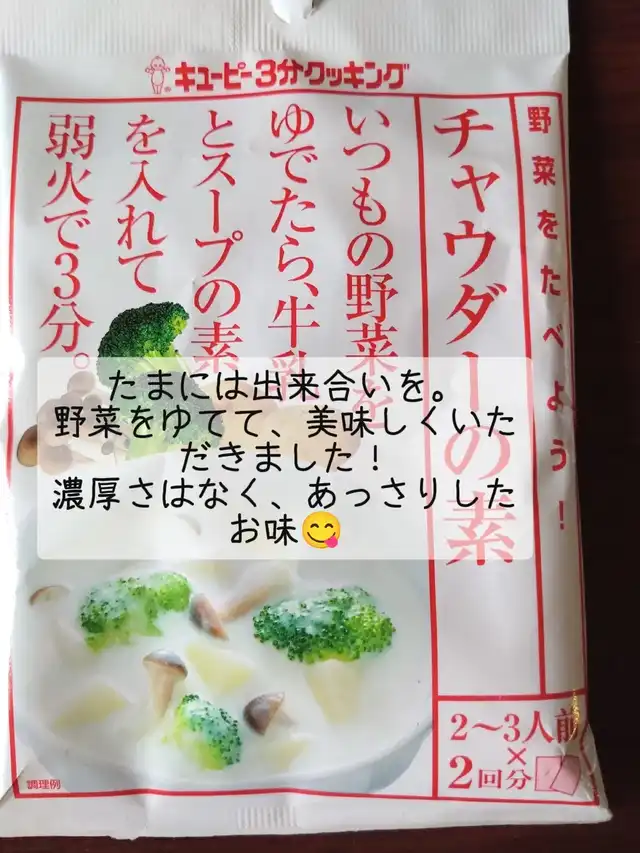 キユーピー3分クッキング
野菜をたべよう!
チャウダーの素
いつもの野菜を
ゆでたら、牛乳
とスープの素
を入れて
弱火で3分。
たまには出来合いを。
野菜をゆてて、美味しくいた
だきました!
濃厚さはなく、あっさりした
お味😋
2〜3人前
×
2回分
調理例